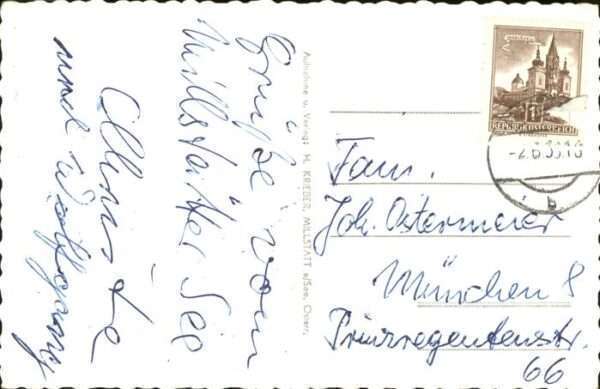 Grüße vom
Millstätter See
und Wolfgang
Aufnahme u. Verlag: H. KREDER, MILLSTATT a/See, Österr.
1 S
REPUBLIK ÖSTERREICH
b
Fam.
Joh. Ostermeier
München 8
Prinzregentenstr.
66